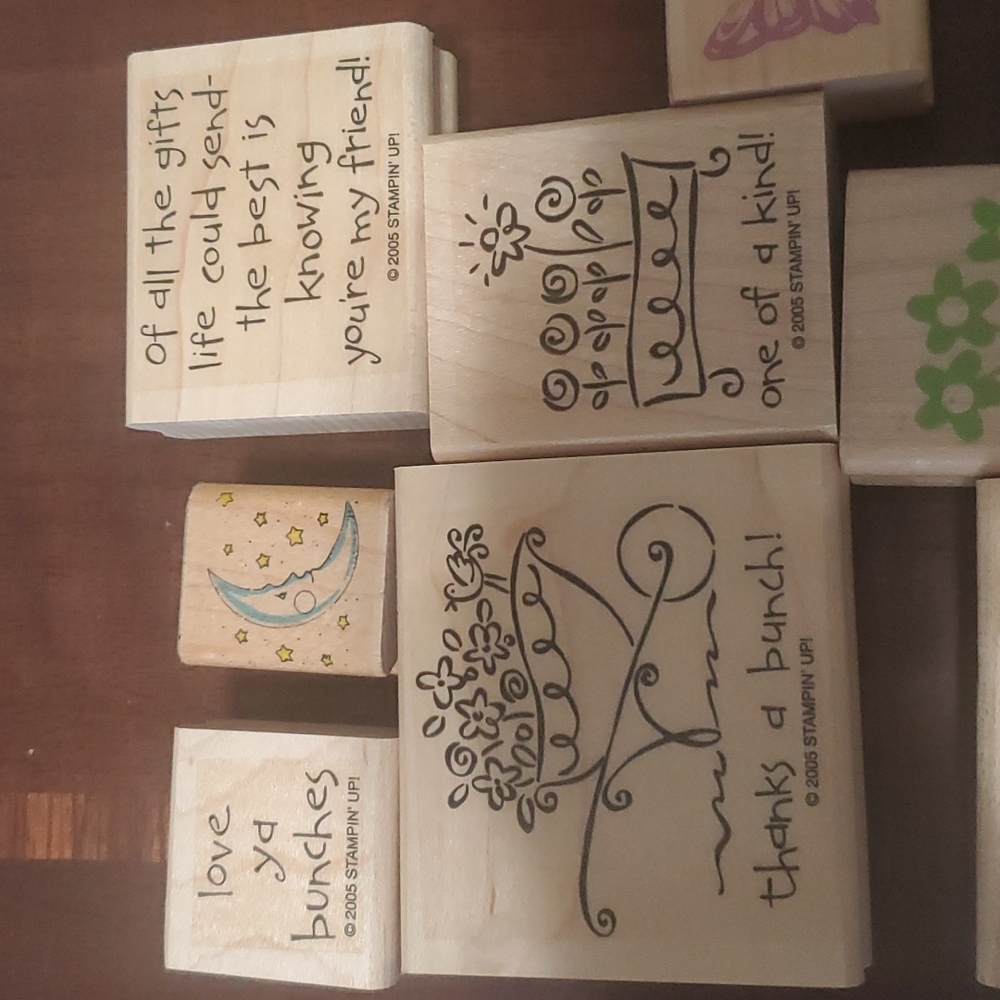 of all the gifts
life could send-
the best is
knowing
you're my friend!
© 2005 STAMPIN' UP!
one of a kind!
© 2005 STAMPIN' UP!
love
ya
bunches
© 2005 STAMPIN' UP!
thanks a bunch!
© 2005 STAMPIN' UP!